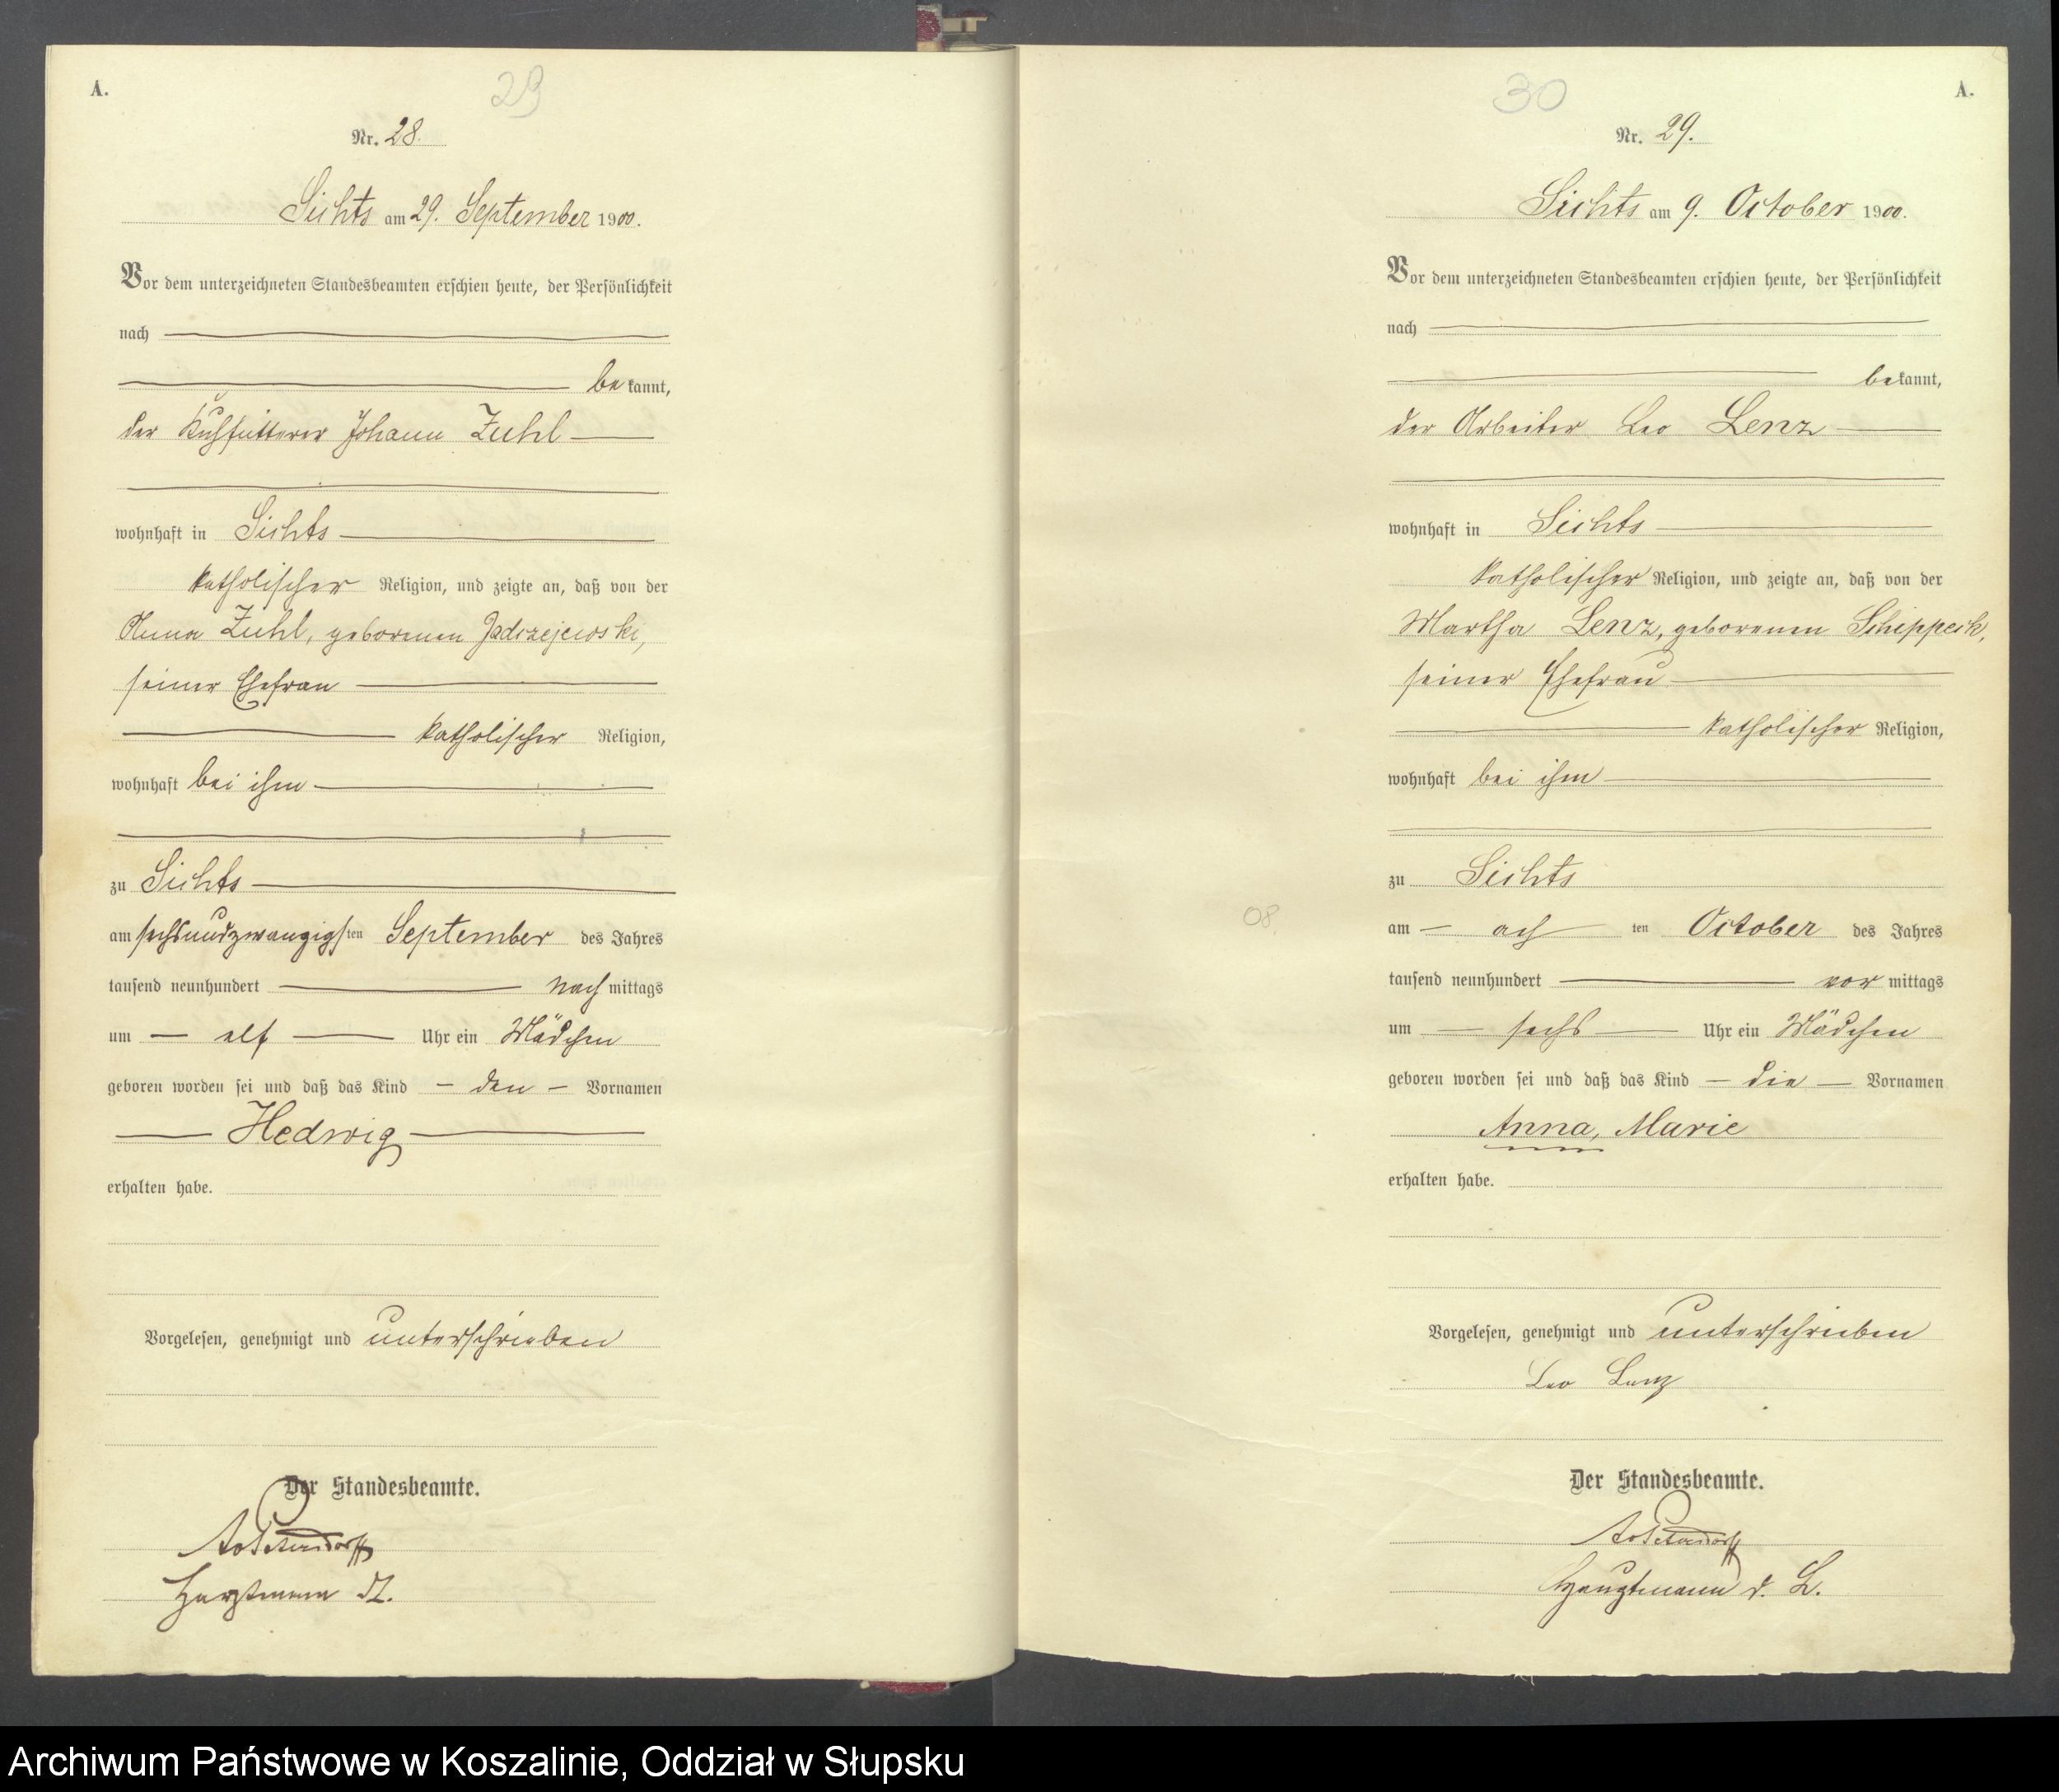 A.
29
Nr. 28.
Sichts am 29. September 1900.
Vor dem unterzeichneten Standesbeamten erschien heute, der Persönlichkeit
nach
bekannt,
der Kuhfütterer Johann Zuhl
wohnhaft in Sichts
katholischer Religion, und zeigte an, daß von der
Anna Zuhl, geborenen Jadrzejewski,
seiner Ehefrau
katholischer Religion,
wohnhaft bei ihm
zu Sichts
am sechsundzwanzigsten September des Jahres
tausend neunhundert nachmittags
um elf Uhr ein Mädchen
geboren worden sei und daß das Kind den Vornamen
Hedwig
erhalten habe.
Vorgelesen, genehmigt und unterschrieben
Der Standesbeamte.
Hauptmann d. L.
30
A.
Nr. 29.
Sichts am 9. October 1900.
Vor dem unterzeichneten Standesbeamten erschien heute, der Persönlichkeit
nach
bekannt,
der Arbeiter Leo Lenz
wohnhaft in Sichts
katholischer Religion, und zeigte an, daß von der
Martha Lenz, geborenen Schippeck,
seiner Ehefrau
katholischer Religion,
wohnhaft bei ihm
zu Sichts
08.
am achten October des Jahres
tausend neunhundert vormittags
um sechs Uhr ein Mädchen
geboren worden sei und daß das Kind die Vornamen
Anna, Marie
erhalten habe.
Vorgelesen, genehmigt und unterschrieben
Leo Lenz
Der Standesbeamte.
Hauptmann d. L.
Archiwum Państwowe w Koszalinie, Oddział w Słupsku